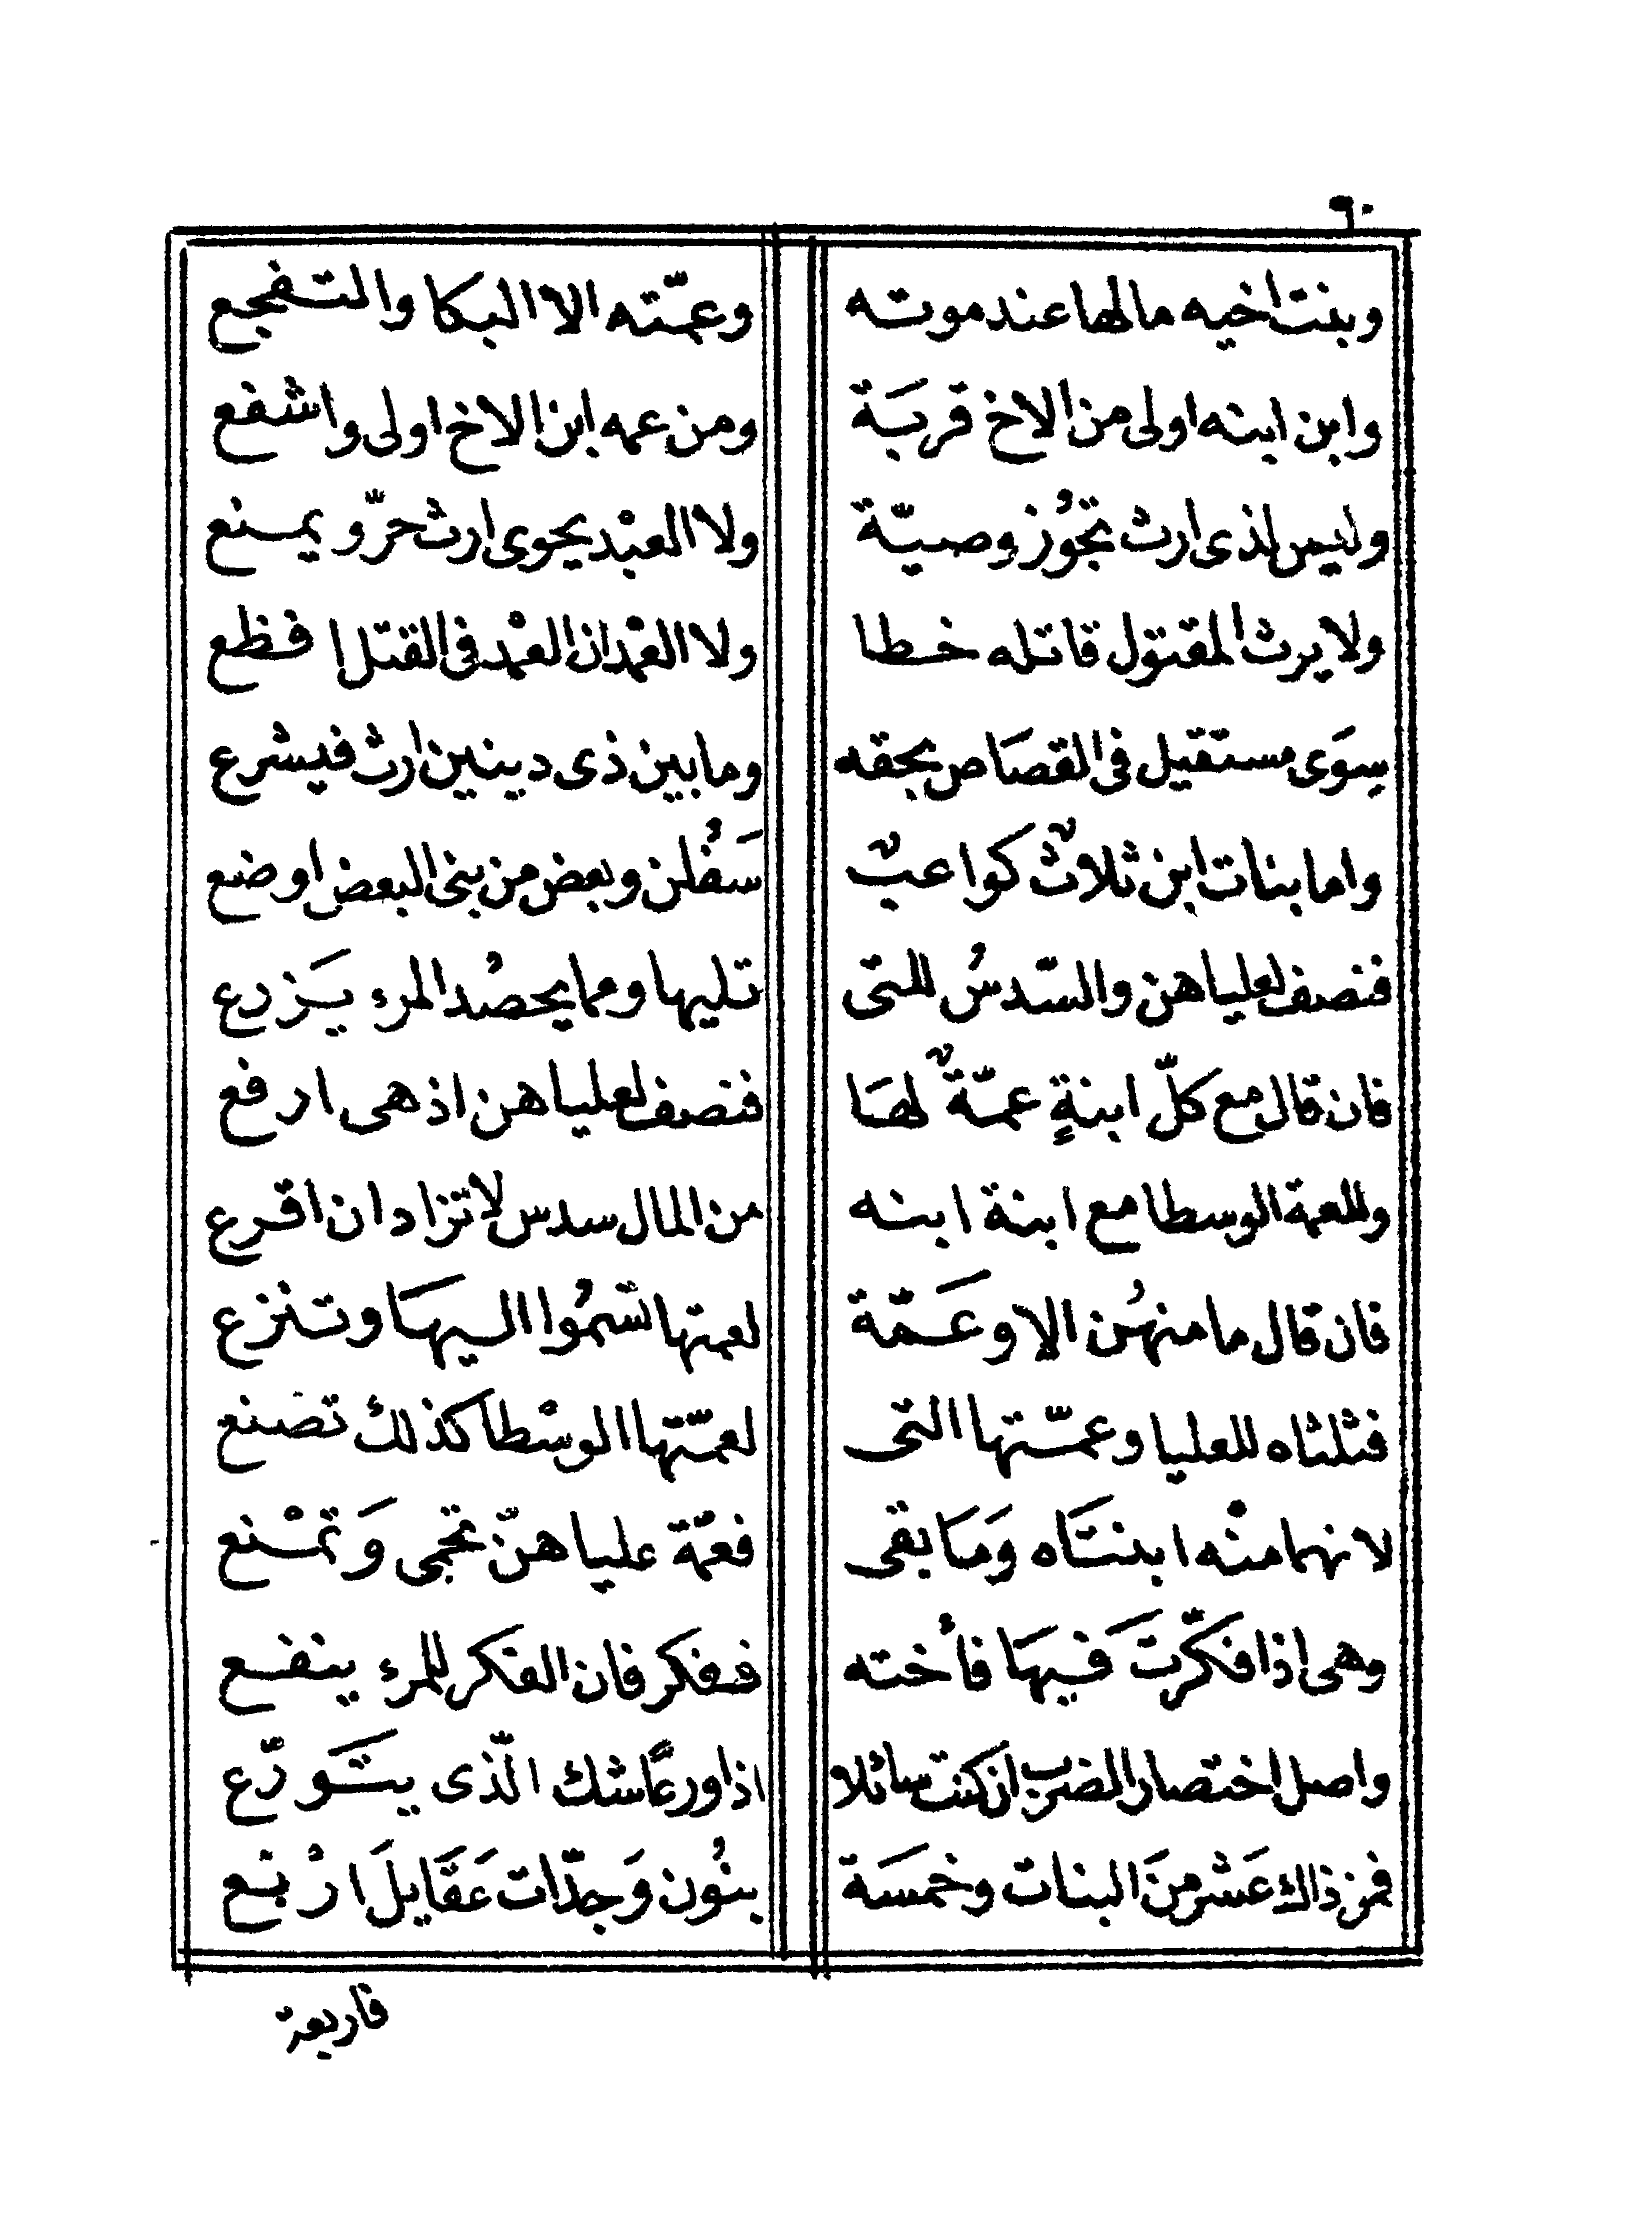 ٦٠
وبنت اخيه مالها عند موته وعمّته الا البكا والتفجع
وابن ابنه اولى من الاخ قربَة ومن عمه ابن الاخ اولى واشفع
وليس لذى ارث تجُوز وصيّة ولا العبْد يحوى ارث حرّ و يمنع
ولا يرث المقتول قاتله خطا ولا العمْد ان العمْد فى القتل افظع
سِوَى مستقيل فى القصَاص بحقه وما بين ذى دينين ارث فيشرع
واما بنات ابن ثلاثٌ كواعبٌ سَفُلن وبعض من بنى البعض اوضع
فنصف لعلياهن والسّدسُ للتى تليها ومما يحصُد المرء يَزرع
فان قال مع كلّ ابنةٍ عمّةٌ لهَا فنصف لعلياهن اذ هى ارفع
وللعمة الوسطا مع ابنة ابنه من المال سدس لا تزاد ان اقرع
فان قال ما منهُن الا وعَمّة لعمتها سُمُوا اليهَا وتنزع
فثلثاه للعليا وعمّتها التى لعمّتها الوسْطا كذلك تصنع
لانهما منْه ابنتَاه وَمَا بقى فعمّة علياهنّ تحمى وَتمْنع
وهى اذا فكّرتَ فيهَا فأخته ففكر فان الفكر للمرء ينفع
واصل اختصار الضرب ان كنت سائلا اذا ورعًا شك الّذى يتَورّع
فمن ذالك عَشر منَ البنات وخمسَة بنُون وَجدّات عَقَايلَ ارْبع
فاربعة